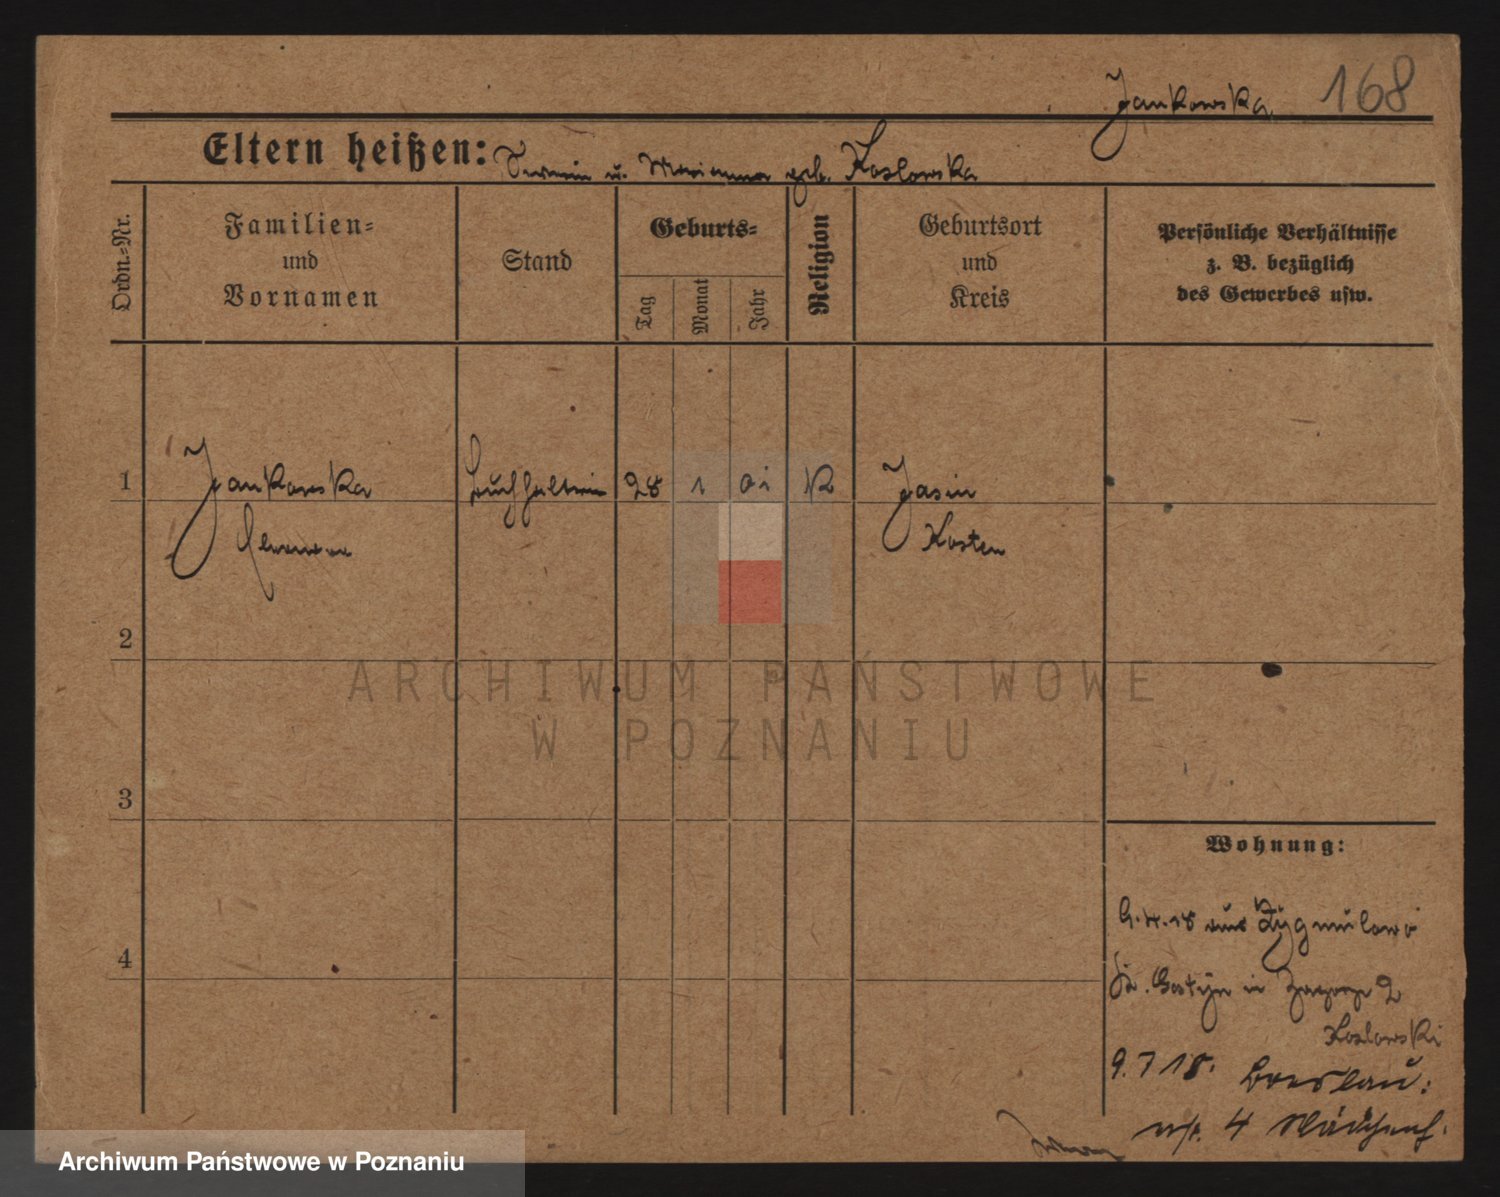 Jankowska 168
Eltern heißen: u. Marianna geb. Koslowska
Ordn.-Nr.
Familien-
und
Vornamen
Stand
Geburts-
Tag
Monat
Jahr
Religion
Geburtsort
und
Kreis
Persönliche Verhältnisse
z. B. bezüglich
des Gewerbes usw.
1 Jankowska Buchhalterin 28 1 01 K Jasin
Kosten
2
ARCHIWUM PAŃSTWOWE
W POZNANIU
3
Wohnung:
4.18 aus
4
Kr. Gostyn in 2
Koslowski
9.7 18. Breslau:
4
Archiwum Państwowe w Poznaniu